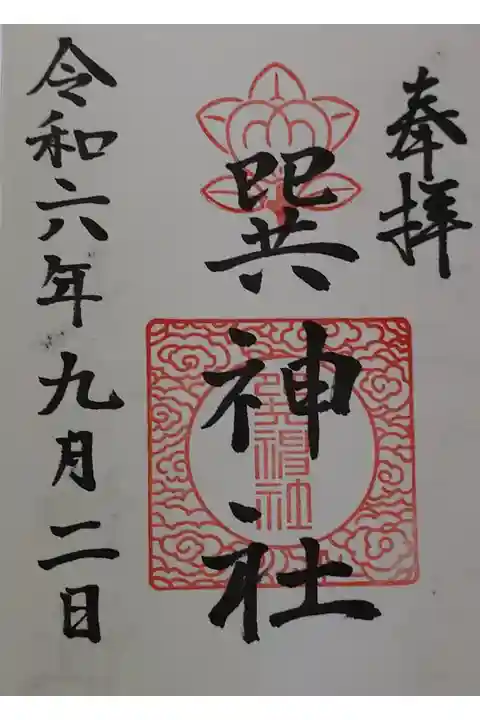 奉拝
巽神社
令和六年九月二日